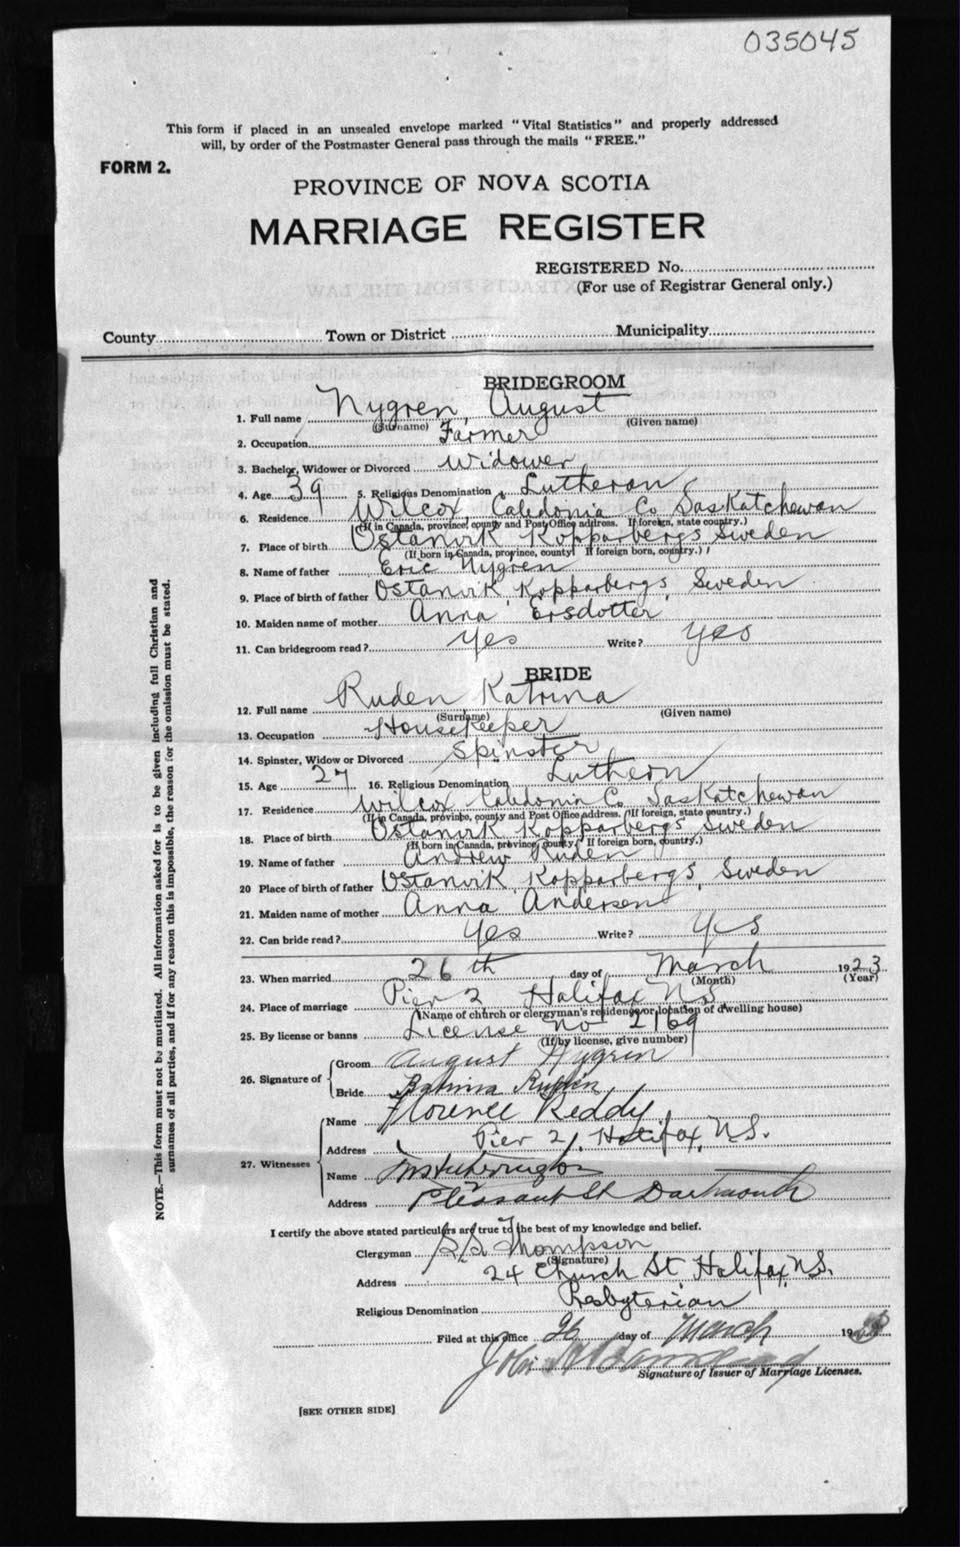 035045
This form if placed in an unsealed envelope marked "Vital Statistics" and properly addressed
will, by order of the Postmaster General pass through the mails "FREE."
FORM 2.
PROVINCE OF NOVA SCOTIA
MARRIAGE REGISTER
REGISTERED No.
(For use of Registrar General only.)
County Town or District Municipality
BRIDEGROOM
1. Full name Nygren, August
(Surname) (Given name)
2. Occupation Farmer
3. Bachelor, Widower or Divorced Widower
4. Age 39 5. Religious Denomination Lutheran
6. Residence Wilcox, Caledonia Co Saskatchewan
(If in Canada, province, county and Post Office address. If foreign, state country.)
7. Place of birth Ostanvik Kopparbergs Sweden
(If born in Canada, province, county) If foreign born, country.)
8. Name of father Eric Nygren
9. Place of birth of father Ostanvik, Kopparbergs, Sweden
10. Maiden name of mother Anna Ersdotter
11. Can bridegroom read? Yes Write? Yes
BRIDE
12. Full name Ruden Katrina
(Surname) (Given name)
13. Occupation Housekeeper
14. Spinster, Widow or Divorced Spinster
15. Age 27 16. Religious Denomination Luthern
17. Residence Wilcox Caledonia Co. Saskatchewan
(If in Canada, province, county and Post Office address. If foreign, state country.)
18. Place of birth Ostanvik Kopparbergs Sweden
(If born in Canada, province, county, If foreign born, country.)
19. Name of father Andrew Ruden
20 Place of birth of father Ostanvik, Kopparbergs, Sweden
21. Maiden name of mother Anna Andersen
22. Can bride read? Yes Write? Yes
23. When married 26th day of March 1923
(Month) (Year)
24. Place of marriage Pier 2 Halifax N.S.
(Name of church or clergyman's residence or location of dwelling house)
25. By license or banns License no 2169
(If by license, give number)
26. Signature of Groom August Nygren
Bride Ruden
27. Witnesses Name Florence Reddy
Address Pier 2, Halifax, N.S.
Name
Address Pleasant St Dartmouth
I certify the above stated particulars are true to the best of my knowledge and belief.
Clergyman Thompson
(Signature)
Address 24 Church St Halifax, N.S.
Religious Denomination Presbyterian
Filed at this office 26 day of March 19
John
Signature of Issuer of Marriage Licenses.
[SEE OTHER SIDE]
NOTE.—This form must not be mutilated. All information asked for is to be given including full Christian and
surnames of all parties, and if for any reason this is impossible, the reason for the omission must be stated.